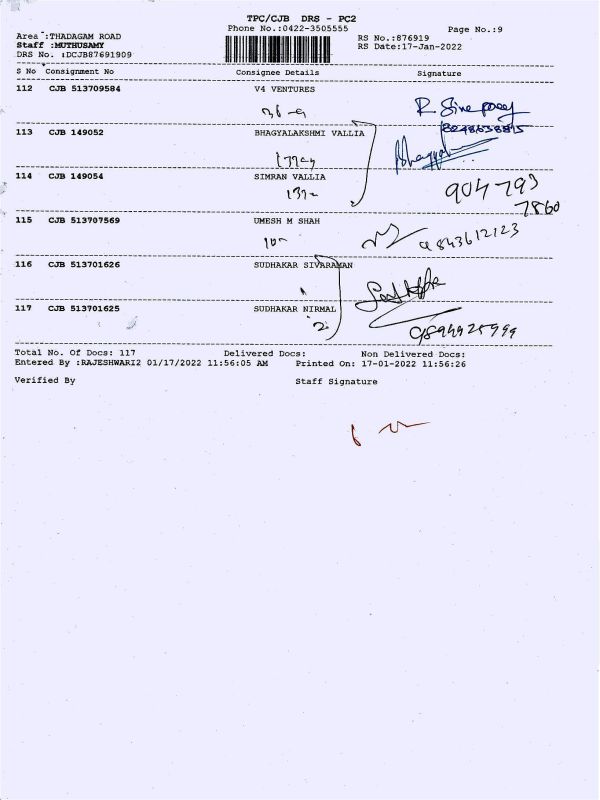 TPC/CJB DRS - PC2
Phone No.:0422-3505555
Page No.:9
Area :THADAGAM ROAD
RS No.:876919
Staff :MUTHUSAMY
RS Date:17-Jan-2022
DRS No. :DCJB87691909
S No Consignment No Consignee Details Signature
112 CJB 513709584 V4 VENTURES
113 CJB 149052 BHAGYALAKSHMI VALLIA
8248638815
114 CJB 149054 SIMRAN VALLIA
904 793
7860
115 CJB 513707569 UMESH M SHAH
9843612123
116 CJB 513701626 SUDHAKAR SIVARAMAN
117 CJB 513701625 SUDHAKAR NIRMAL
9894925999
Total No. Of Docs: 117 Delivered Docs: Non Delivered Docs:
Entered By :RAJESHWARI2 01/17/2022 11:56:05 AM Printed On: 17-01-2022 11:56:26
Verified By Staff Signature